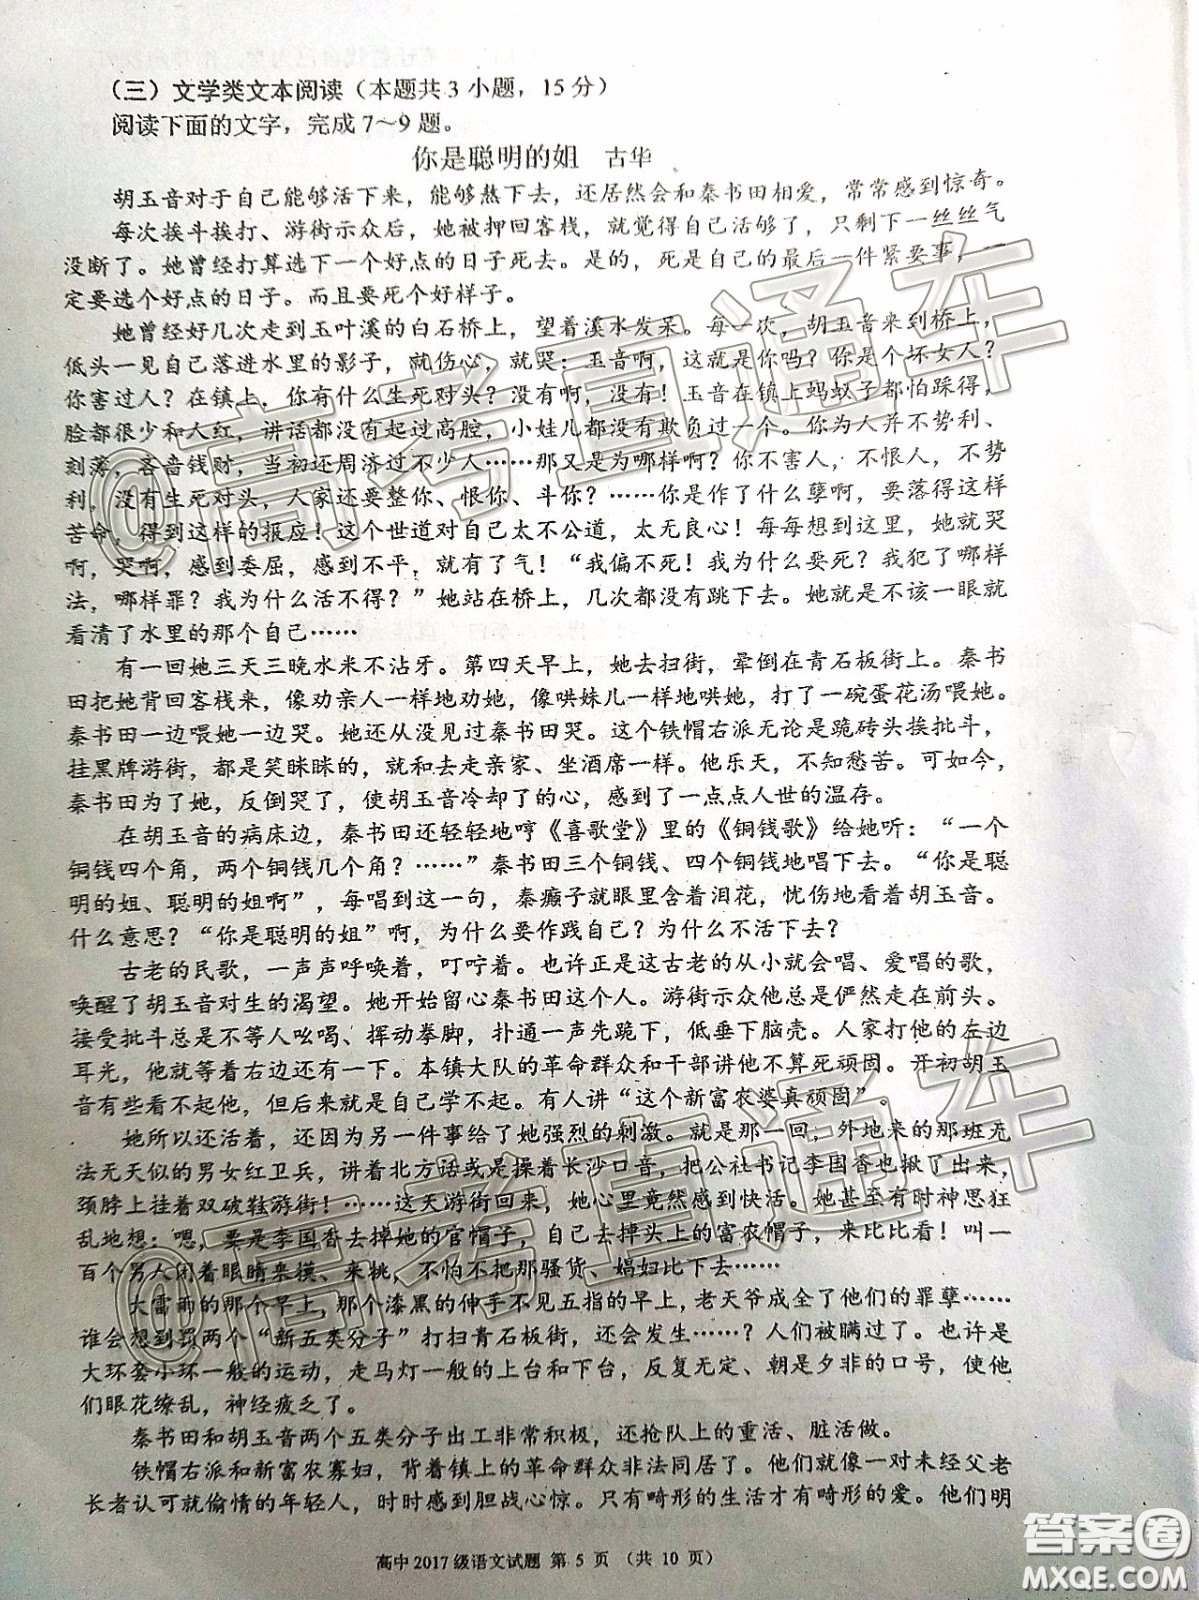 （三）文学类文本阅读（本题共3小题，15分）
阅读下面的文字，完成7～9题。
你是聪明的姐　古华
胡玉音对于自己能够活下来，能够熬下去，还居然会和秦书田相爱，常常感到惊奇。
每次挨斗挨打、游街示众后，她被押回客栈，就觉得自己活够了，只剩下一丝丝气
没断了。她曾经打算选下一个好点的日子死去。是的，死是自己的最后一件紧要事，一
定要选个好点的日子。而且要死个好样子。
她曾经好几次走到玉叶溪的白石桥上，望着溪水发呆。每一次，胡玉音来到桥上，
低头一见自己落进水里的影子，就伤心，就哭：玉音啊，这就是你吗？你是个坏女人？
你害过人？在镇上，你有什么生死对头？没有啊，没有！玉音在镇上蚂蚁子都怕踩得，
脸都很少和人红，讲话都没有起过高腔，小娃儿都没有欺负过一个。你为人并不势利、
刻薄，吝啬钱财，当初还周济过不少人……那又是为哪样啊？你不害人，不恨人，不势
利，没有生死对头，人家还要整你、恨你、斗你？……你是作了什么孽啊，要落得这样
苦命，得到这样的报应！这个世道对自己太不公道，太无良心！每每想到这里，她就哭
啊，哭啊，感到委屈，感到不平，就有了气！“我偏不死！我为什么要死？我犯了哪样
法，哪样罪？我为什么活不得？”她站在桥上，几次都没有跳下去。她就是不该一眼就
看清了水里的那个自己……
有一回她三天三晚水米不沾牙。第四天早上，她去扫街，晕倒在青石板街上。秦书
田把她背回客栈来，像劝亲人一样地劝她，像哄妹儿一样地哄她，打了一碗蛋花汤喂她。
秦书田一边喂她一边哭。她还从没见过秦书田哭。这个铁帽右派无论是跪砖头挨批斗，
挂黑牌游街，都是笑眯眯的，就和去走亲家、坐酒席一样。他乐天，不知愁苦。可如今，
秦书田为了她，反倒哭了，使胡玉音冷却了的心，感到了一点点人世的温存。
在胡玉音的病床边，秦书田还轻轻地哼《喜歌堂》里的《铜钱歌》给她听：“一个
铜钱四个角，两个铜钱几个角？……”秦书田三个铜钱、四个铜钱地唱下去。“你是聪
明的姐、聪明的姐啊”，每唱到这一句，秦癫子就眼里含着泪花，忧伤地看着胡玉音。
什么意思？“你是聪明的姐”啊，为什么要作践自己？为什么不活下去？
古老的民歌，一声声呼唤着，叮咛着。也许正是这古老的从小就会唱、爱唱的歌，
唤醒了胡玉音对生的渴望。她开始留心秦书田这个人。游街示众他总是俨然走在前头。
接受批斗总是不等人吆喝、挥动拳脚，扑通一声先跪下，低垂下脑壳。人家打他的左边
耳光，他就等着右边还有一下。本镇大队的革命群众和干部讲他不算死顽固。开初胡玉
音有些看不起他，但后来就是自己学不起。有人讲“这个新富农婆真顽固”。
她所以还活着，还因为另一件事给了她强烈的刺激。就是那一回，外地来的那班无
法无天似的男女红卫兵，讲着北方话或是操着长沙口音，把公社书记李国香也揪了出来，
颈脖上挂着双破鞋游街！……这天游街回来，她心里竟然感到快活。她甚至有时神思狂
乱地想：嗯，要是李国香去掉她的官帽子，自己去掉头上的富农帽子，来比比看！叫一
百个男人闭着眼睛来摸、来挑，不怕不把那骚货、娼妇比下去……
大雷雨的那个早上，那个漆黑的伸手不见五指的早上，老天爷成全了他们的罪孽……
谁会想到罚两个“新五类分子”打扫青石板街，还会发生……？人们被瞒过了。也许是
大环套小环一般的运动，走马灯一般的上台和下台，反复无定、朝是夕非的口号，使他
们眼花缭乱，神经疲乏了。
秦书田和胡玉音两个五类分子出工非常积极，还抢队上的重活、脏活做。
铁帽右派和新富农寡妇，背着镇上的革命群众非法同居了。他们就像一对未经父老
长者认可就偷情的年轻人，时时感到胆战心惊。只有畸形的生活才有畸形的爱。他们明
高中2017级语文试题 第 5 页 （共 10 页）
@高考直通车
@高考直通车
答案圈
MXQE.COM